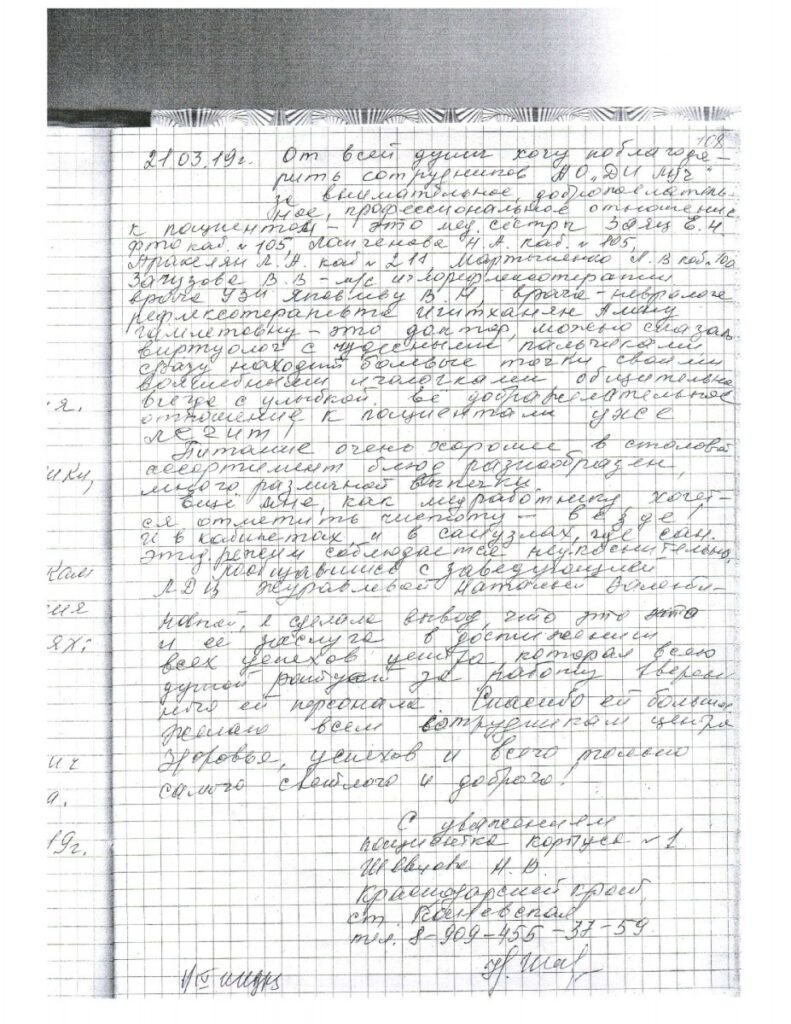 108
21.03.19г. От всей души хочу поблагода-
рить сотрудников АО „ДИ ЛУЧ"
за внимательное, доброжелатель-
ное, профессиональное отношение
к пациентам - это мед. сёстры Заяц Е.Н.
физио каб. № 105, Н.А. каб. № 105,
Аракелян Л.А. каб № 211 Мартыненко Л.В каб.
В.В - м/с иглорефлексотерапии
врача УЗИ В.Н, врача-невролога
рефлексотерапевта Игитханян
Гамлетовну - это доктор, можно сказать
виртуолог с чудесными пальчиками
сразу находит болевые точки своими
волшебными иголочками общительна
всегда с улыбкой. Её доброжелательное
отношение к пациентам уже
лечит!
Питание очень хорошее в столовой
ассортимент блюд разнообразен,
много различной выпечки
Ещё мне, как медработнику, хочет-
ся отметить чистоту - везде!
и в кабинетах, и в санузлах, где сан.
эпид. режим соблюдается неукоснительно,
пообщавшись с заведующей
ЛДЦ Журавлевой Натальей Валенти-
новной, я сделала вывод, что это
и её заслуга в достижении
всех успехов центра, которая всею
душой за работу вверен
ного ей персонала. Спасибо ей большое
Желаю всем сотрудникам центра
Здоровья, успехов и всего только
самого светлого и доброго!
С уважением
пациентка корпуса № 1
Швецова Н.В.
Краснодарский край,
ст. Каневская
тел. 8-909-455-37-59
я.
ики,
кам
ия
ях:
ич
а.
19г.